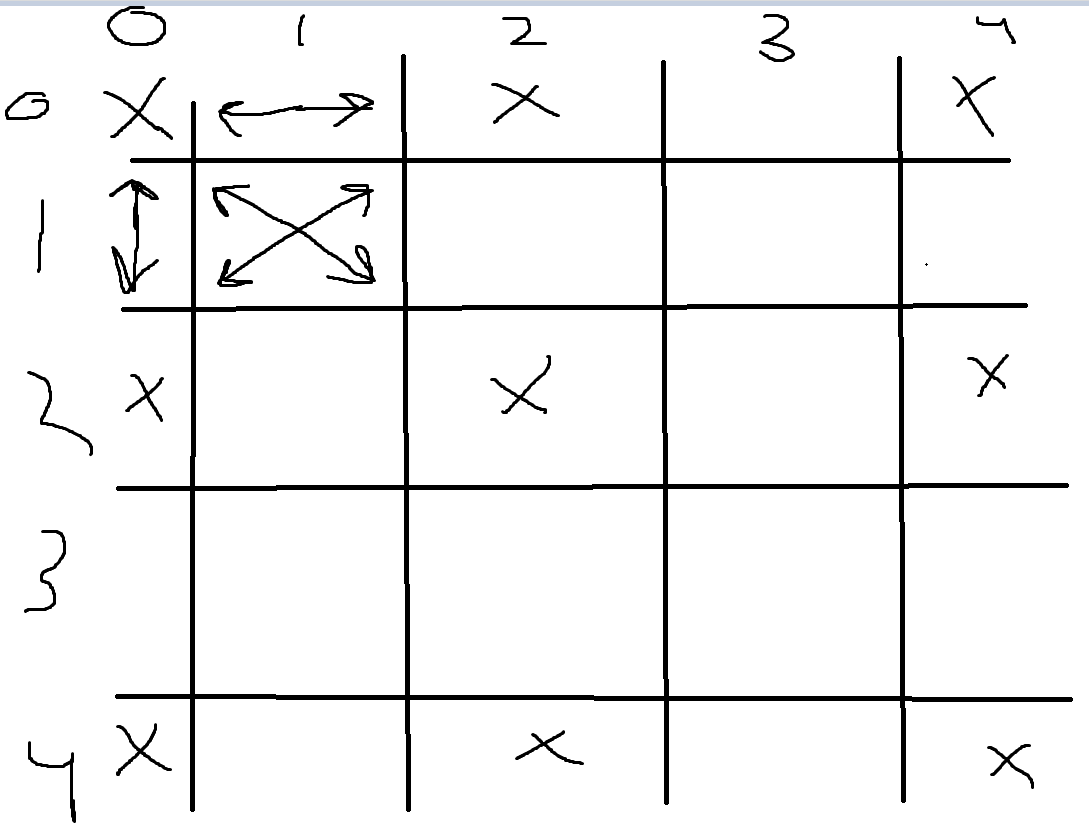 0 1 2 3 4
0 X ↔ X X
1
2 X X X
3
4 X X X